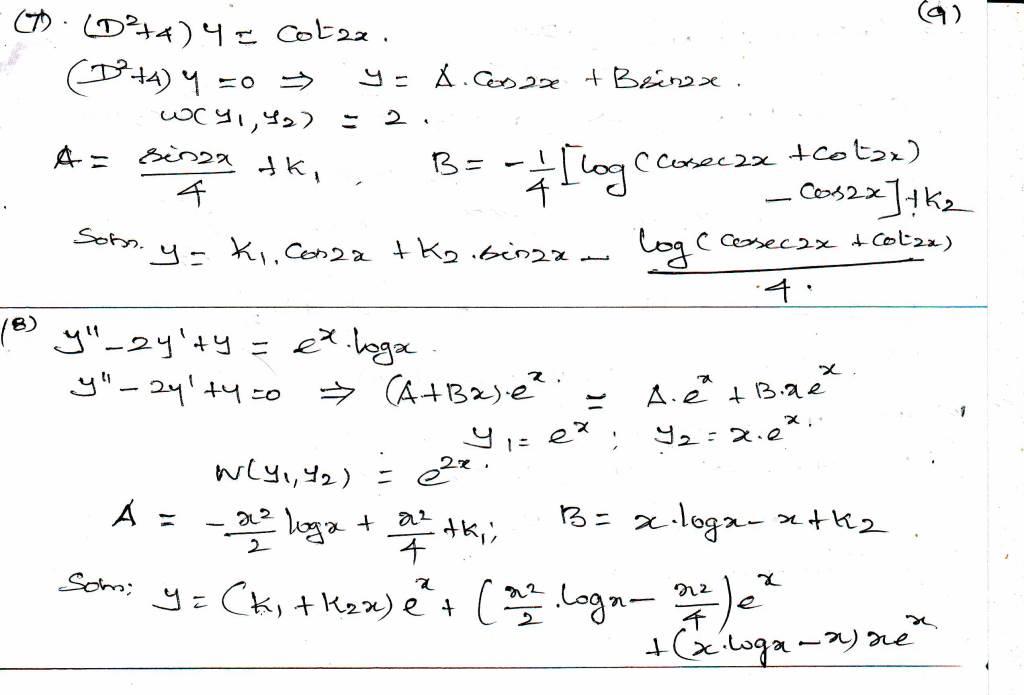 (7). (D²+4) y = cot2x.
(9)
(D²+4) y = 0 ⇒ y = A.Cos2x + Bsin2x.
W(y₁,y₂) = 2.
A = - sin2x/4 + k₁, B = -1/4 [log(cosec2x + cot2x)
- cos2x] + k₂
Soln. y = k₁.Cos2x + k₂.sin2x - log(cosec2x + cot2x)/4.
(8) y'' - 2y' + y = eˣ.logx.
y'' - 2y' + y = 0 ⇒ (A+Bx).eˣ. = A.eˣ + B.xeˣ.
y₁ = eˣ; y₂ = x.eˣ.
W(y₁,y₂) = e²ˣ.
A = -x²/2 logx + x²/4 + k₁; B = x.logx - x + k₂
Soln; y = (k₁ + k₂x) eˣ + (x²/2 .logx - x²/4) eˣ
+ (x.logx - x) xeˣ